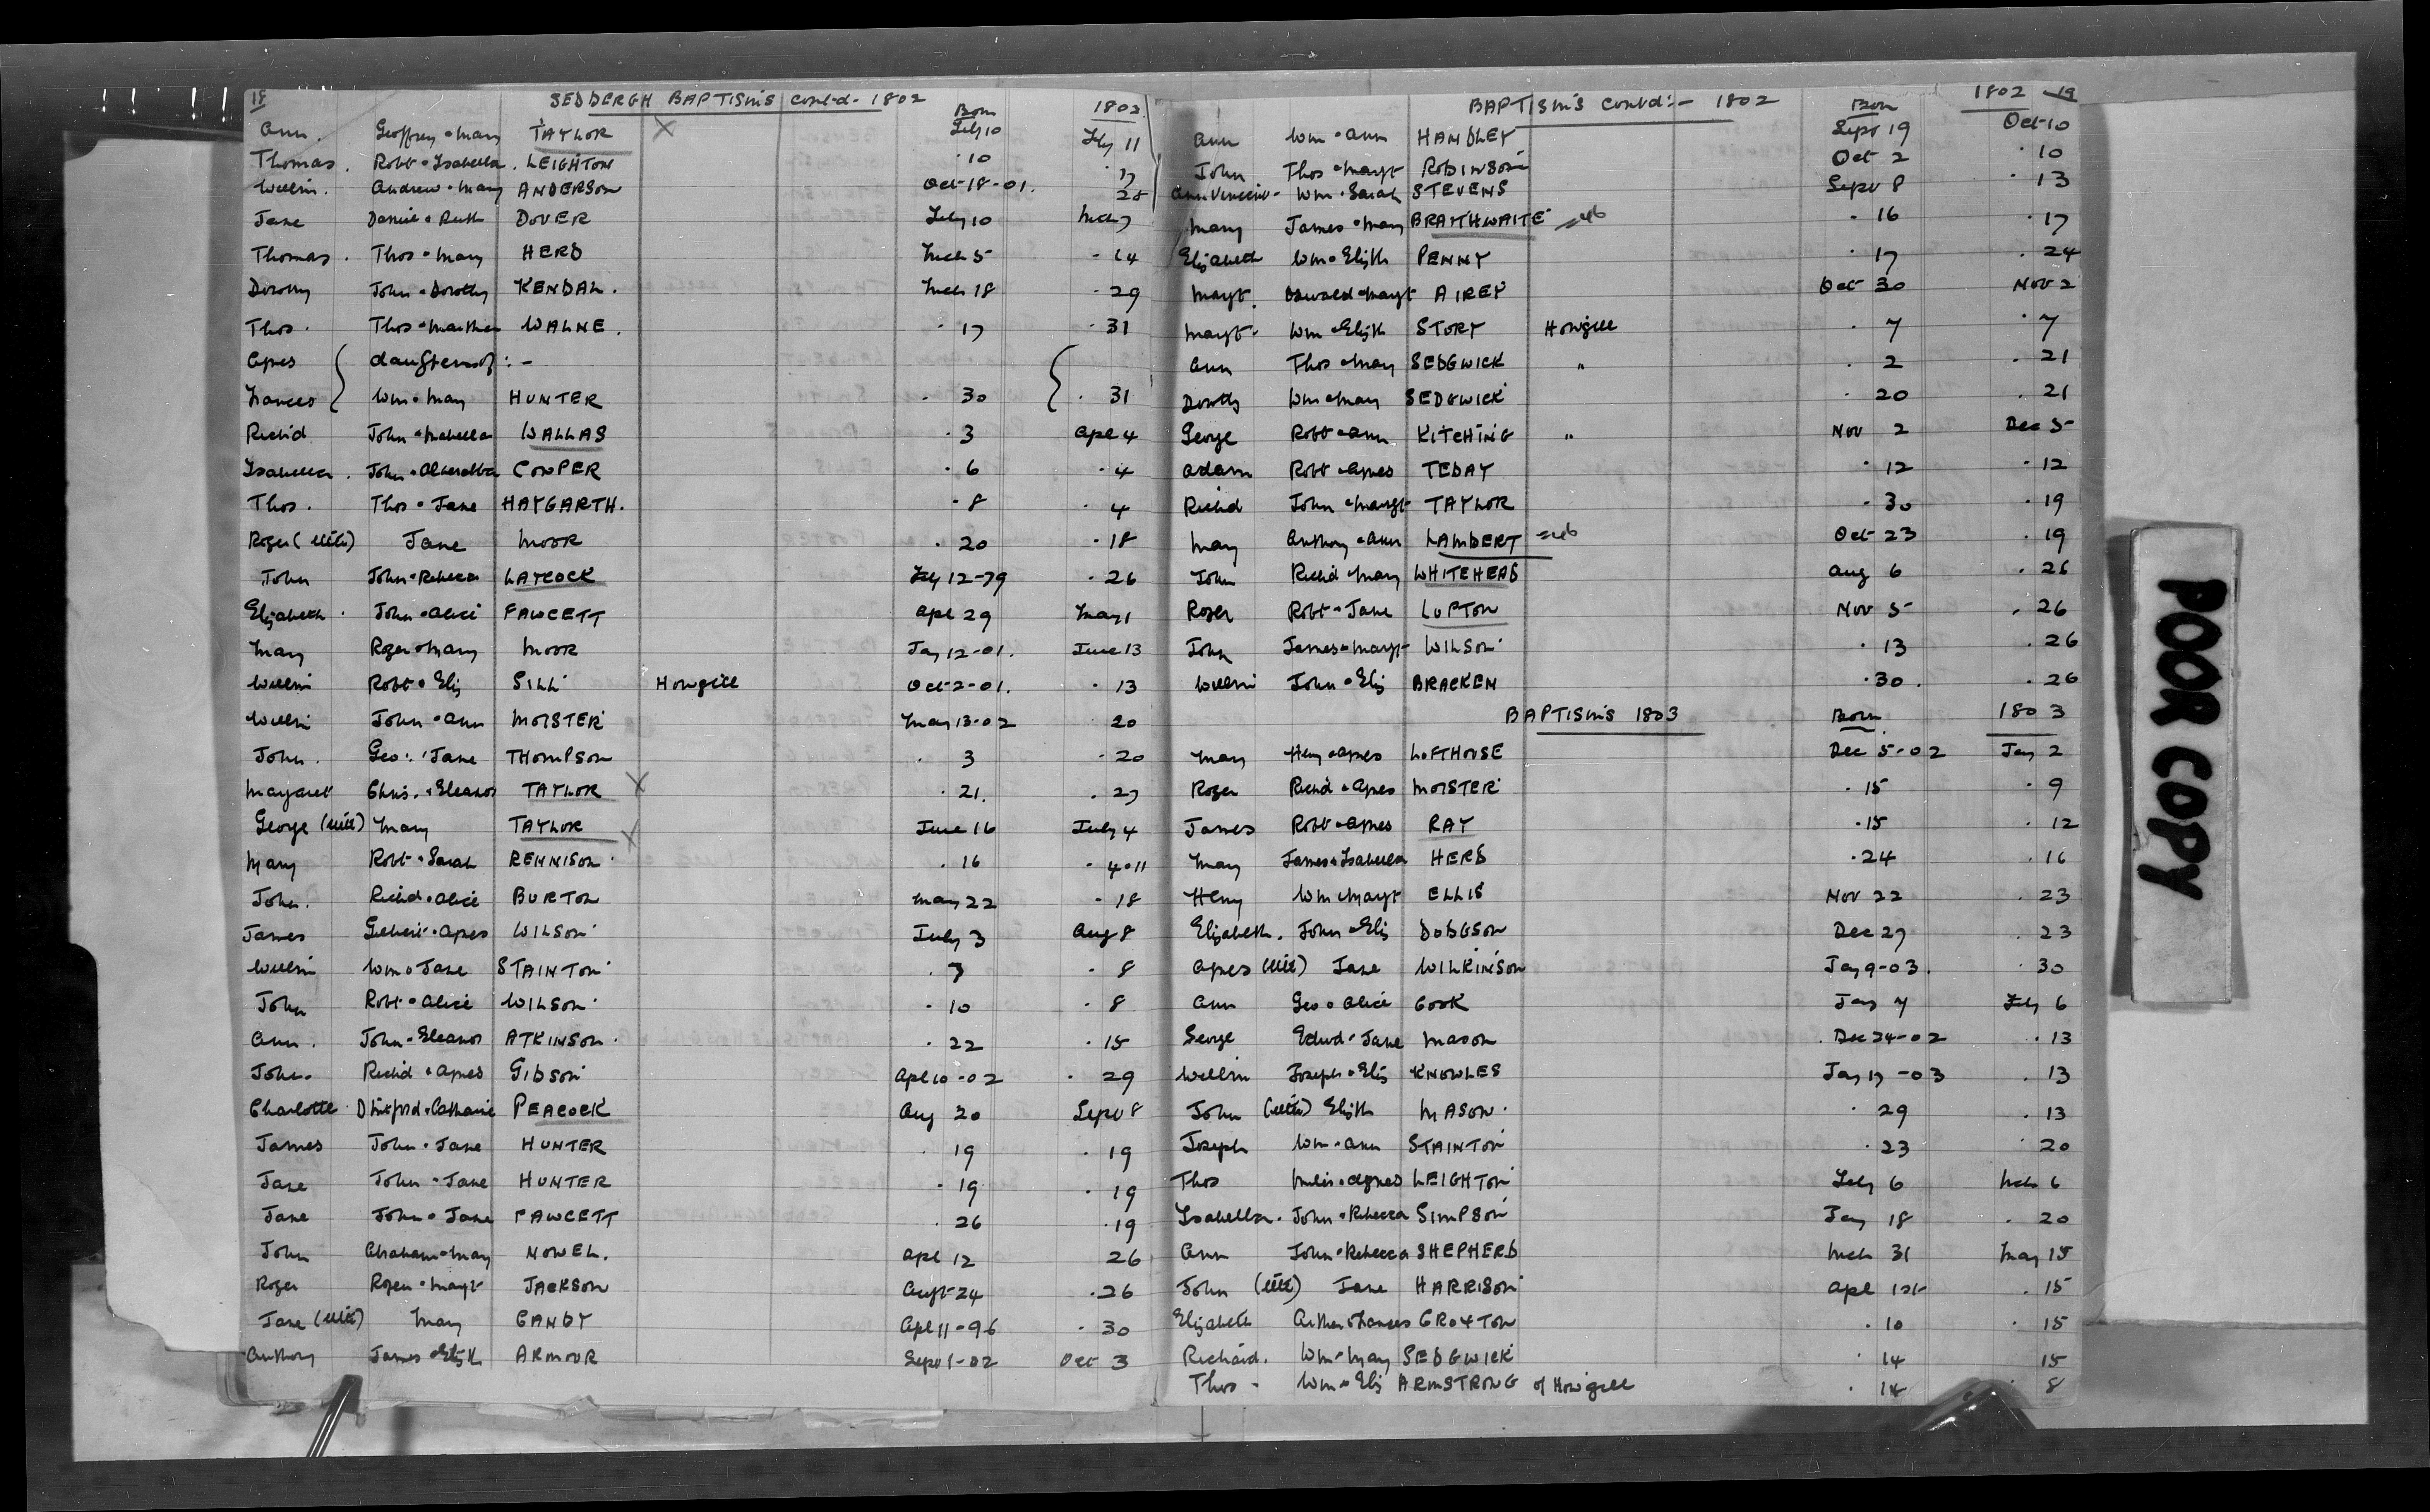 18
SEDBERGH BAPTISMS Contd - 1802
Born 1802
Ann. Geoffrey & Mary TAYLOR X Feby 10 Feby 11
Thomas. Robt & Isabella. LEIGHTON · 10 · 17
Willm. Andrew & Mary ANDERSON Oct-18-01. 28
Jane Daniel & Ruth DOVER Feby 10 Mch 7
Thomas. Thos & Mary HERD Mch 5 - 14
Dorothy John & Dorothy KENDAL. Mch 18 · 29
Thos. Thos & Martha WALNE. · 17 · 31
Agnes } daughters of :-
Frances } Wm & Mary HUNTER · 30 { · 31
Richd John & Mabella WALLAS · 3 Apl 4
Isabella. John & COWPER · 6 · 4
Thos. Thos & Jane HAYGARTH. · 8 · 4
Roger (illit) Jane MOOR · 20 · 18
John John & Rebecca LAYCOCK Feby 12-79 · 26
Elizabeth. John & Alice FAWCETT Apl 29 May 1
Mary Roger & Mary MOOR Jay 12-01. June 13
Willm Robt & Eliz SILL Howgill Oct-2-01. · 13
Willm John & Ann MOISTER May 13-02 20
John. Geo: & Jane THOMPSON · 3 · 20
Margaret Chris. & Eleanor TAYLOR X · 21. · 27
George (illit) Mary TAYLOR X June 16 July 4
Mary Robt & Sarah RENNISON · 16 · 4·11
John. Richd & Alice BURTON May 22 · 18
James Gilbert & Agnes WILSON July 3 Aug 8
Willm Wm & Jane STAINTON · 7 · 8
John Robt & Alice WILSON · 10 · 8
Ann. John & Eleanor ATKINSON. · 22 · 15
John. Richd & Agnes GIBSON Apl 10-02 · 29
Charlotte & Catharine PEACOCK Aug 20 Sept 8
James John & Jane HUNTER · 19 · 19
Jane John & Jane HUNTER · 19 · 19
Jane John & Jane FAWCETT · 26 · 19
John Abraham & Mary NOWEL. Apl 12 26
Roger Roger & Margt JACKSON Augt 24 · 26
Jane (illit) Mary GANDY Apl 11-96 · 30
Anthony James & Elizth ARMOUR Sept 1-02 Oct 3
BAPTISMS Contd:- 1802 Born 1802 19
Ann Wm & Ann HANDLEY Sept 19 Oct 10
John Thos & Margt ROBINSON Oct 2 · 10
Ann Vincent Wm & Sarah STEVENS Sept 8 · 13
Mary James & Mary BRAITHWAITE · 16 · 17
Elizabeth Wm & Elizth PENNY · 17 · 24
Margt. Oswald & Margt AIREY Oct 30 Nov 2
Margt. Wm & Elizth STORY Howgill · 7 · 7
Ann Thos & Mary SEDGWICK " · 2 · 21
Dorothy Wm & Mary SEDGWICK · 20 · 21
George Robt & Ann KITCHING " Nov 2 Dec 5
Adam Robt & Agnes TEBAY · 12 · 12
Richd John & Margt TAYLOR · 30 · 19
Mary Anthony & Ann LAMBERT Oct 23 · 19
John Richd & Mary WHITEHEAD Aug 6 · 26
Roger Robt & Jane LUPTON Nov 5 · 26
John James & Margt WILSON · 13 · 26
Willm John & Eliz BRACKEN · 30. · 26
BAPTISMS 1803 Born 1803
Mary Heny & Agnes LOFTHOUSE Dec 5-02 Jay 2
Roger Richd & Agnes MOISTER · 15 · 9
James Robt & Agnes RAY · 15 · 12
Mary James & Isabella HERD · 24 · 16
Heny Wm & Margt ELLIS Nov 22 · 23
Elizabeth. John & Eliz DODGSON Dec 27 · 23
Agnes (illit) Jane WILKINSON Jay 9-03. · 30
Ann Geo & Alice COOK Jay 7 Feby 6
George Edwd & Jane MASON · Dec 24-02 · 13
Willm Joseph & Eliz KNOWLES Jay 17-03 · 13
John (illit) Elizth MASON. · 29 · 13
Joseph Wm & Ann STAINTON · 23 · 20
Thos Miles & Agnes LEIGHTON Feby 6 Mch 6
Isabella. John & Rebecca SIMPSON Jay 18 · 20
Ann John & Rebecca SHEPHERD Mch 31 May 15
John (illit) Jane HARRISON Apl 1st · 15
Elizabeth Arthur & Frances CROXTON · 10 · 15
Richard. Wm & Mary SEDGWICK · 14 15
Thos - Wm & Eliz ARMSTRONG of Howgill · 14 · 8
POOR COPY